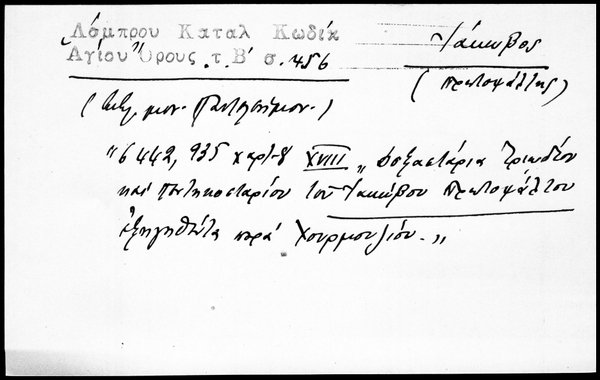 Λάμπρου Καταλ Κωδίκ
Αγίου Όρους τ. Β' σ. 456
Ιάκωβος
(Πρωτοψάλτης)
(Βιβλ. μον. Παντελεήμον.)
"6442, 935 χαρτ. 8 XVIII „ Δοξαστάρια Τριωδίου
και Πεντηκοσταρίου του Ιακώβου Πρωτοψάλτου
εξηγηθέντα παρά Χουρμουζίου. „